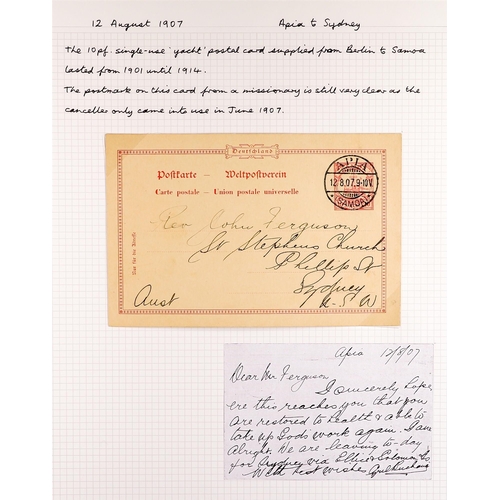 12 August 1907 Apia to Sydney
The 10pf. single-use 'yacht' postal card supplied from Berlin to Samoa
lasted from 1901 until 1914.
The postmark on this card from a missionary is still very clear as the
canceller only came into use in June 1907.
Deutschland
Postkarte – Weltpostverein
Carte postale – Union postale universelle
APIA
12.8.07.9-10V.
(SAMOA)
Rev John Ferguson
St Stephens Church
Phillip St
Sydney
N.S.W
Aust
Apia 12/8/07
Dear Mr Ferguson
I sincerely hope
ere this reaches you that you
are restored to health & able to
take up Gods work again. I am
alright. We are leaving to-day
for Sydney via Ellice & Solomon Is
With best wishes